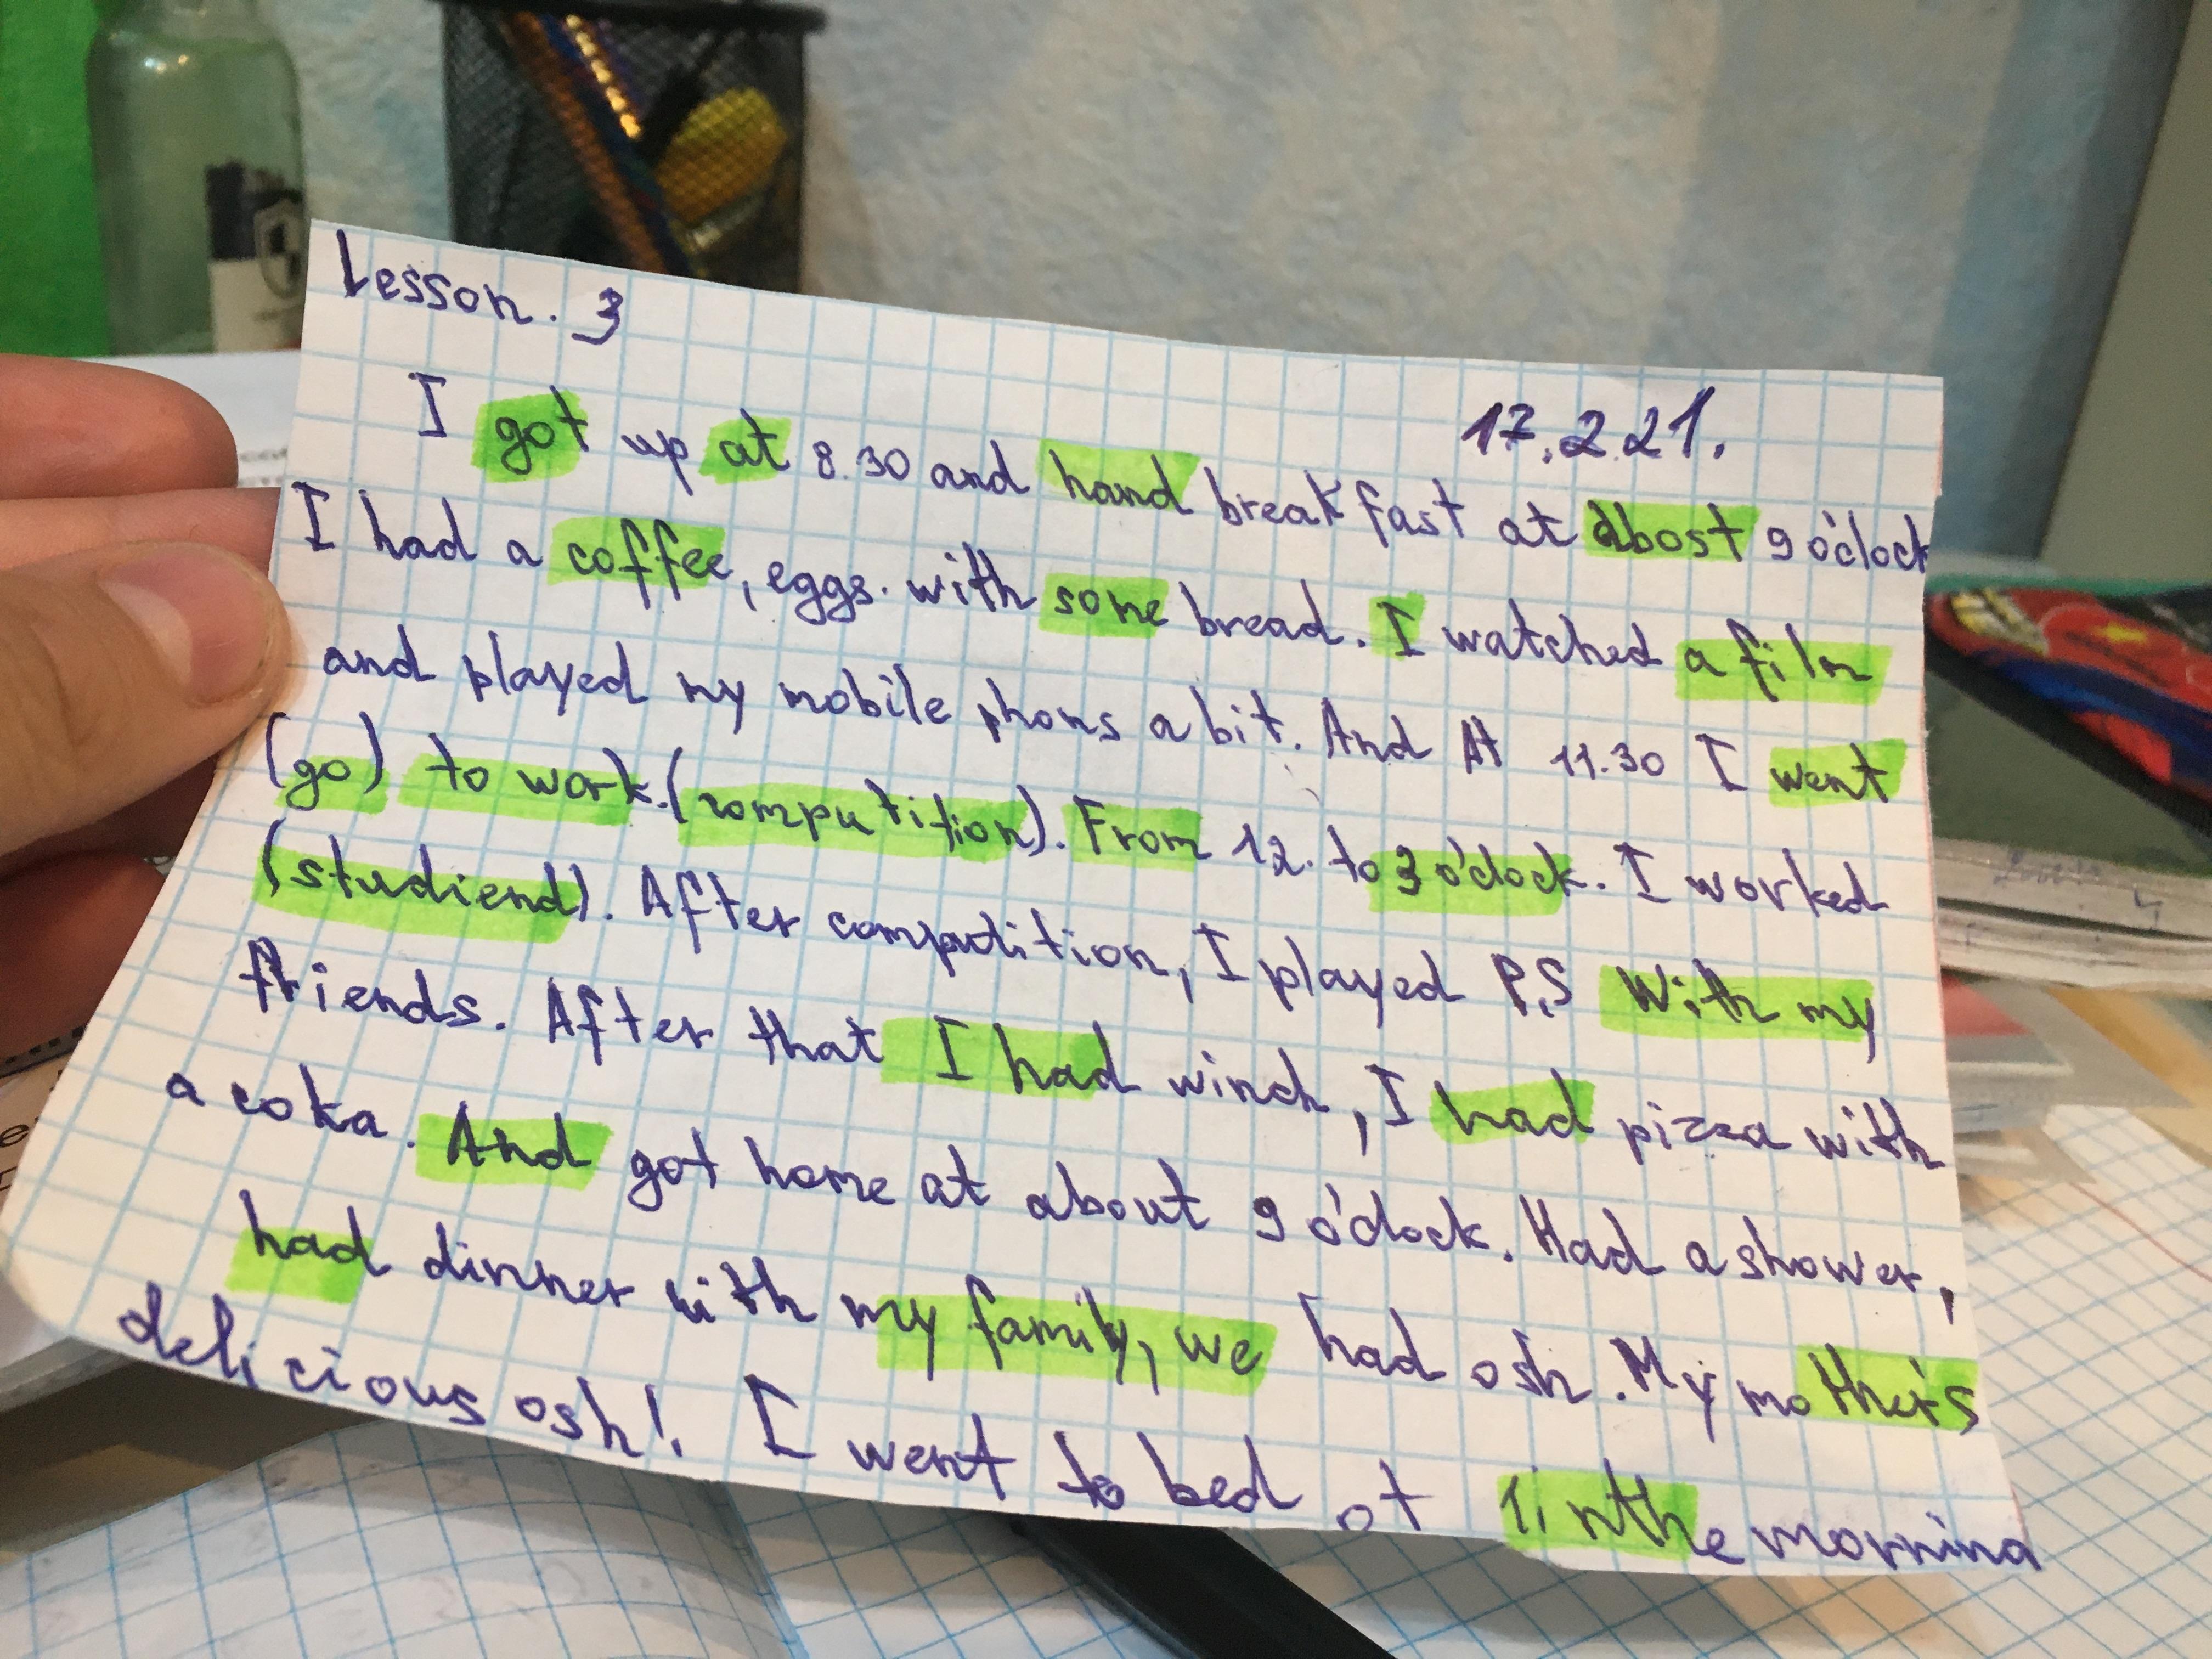 Lesson. 3
17.2.21.
I got up at 8.30 and hand breakfast at abost 9 o'clock
I had a coffee, eggs. with some bread. I watched a film
and played my mobile phons a bit. And At 11.30 I went
(go) to work.(computition). From 12. to 3 o'clock. I worked
(studiend). After computition, I played P.S With my
friends. After that I had winch, I had pizza with
a coka. And got home at about 9 o'clock. Had a shower,
had dinner with my family, we had osh. My mother's
delicious osh!. I went to bed at 1 in the morning